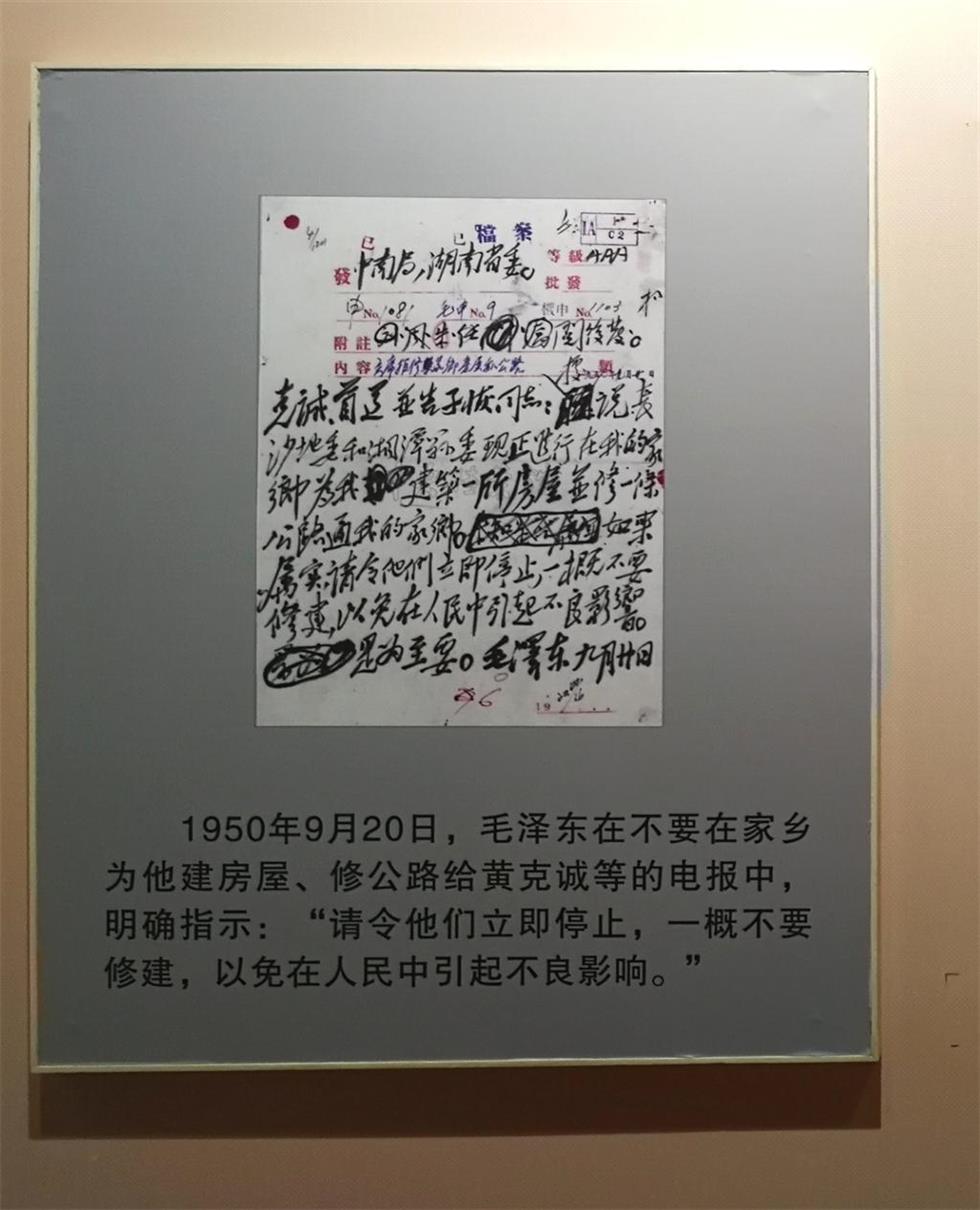 檔案
IA
C2
等級AAA
發 中南局，湖南省委。
批發
No.1081 毛申No.9 機申No.1103
附註
內容
克誠、首道並告子恢同志：據說長
沙地委和湘潭縣委現正進行在我的家
鄉為我建築一所房屋並修一條
公路通我的家鄉。如果
屬實，請令他們立即停止，一概不要
修建，以免在人民中引起不良影響。
是为至要。毛澤东 九月廿日
96
19
1950年9月20日，毛泽东在不要在家乡
为他建房屋、修公路给黄克诚等的电报中，
明确指示：“请令他们立即停止，一概不要
修建，以免在人民中引起不良影响。”